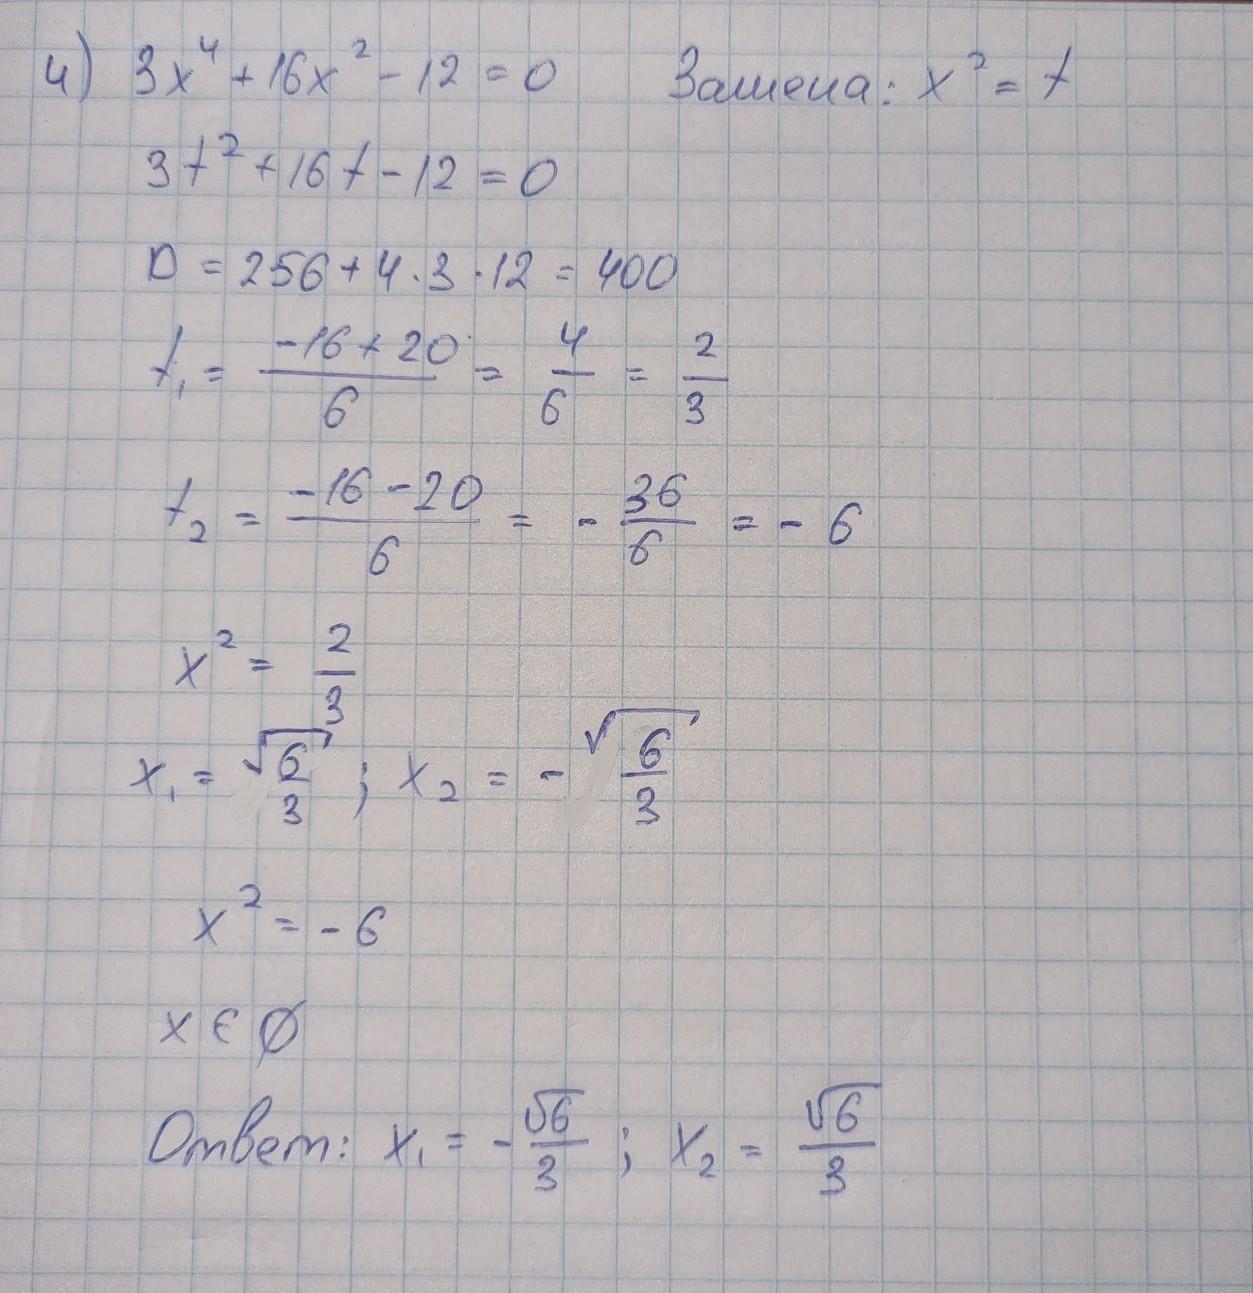 4) 3x⁴ + 16x² - 12 = 0 Замена: x² = t
3t² + 16t - 12 = 0
D = 256 + 4 · 3 · 12 = 400
t₁ = (-16 + 20)/6 = 4/6 = 2/3
t₂ = (-16 - 20)/6 = - 36/6 = - 6
x² = 2/3
x₁ = √6/3 ; x₂ = - √6/3
x² = - 6
x ∈ ∅
Ответ: x₁ = - √6/3 ; x₂ = √6/3